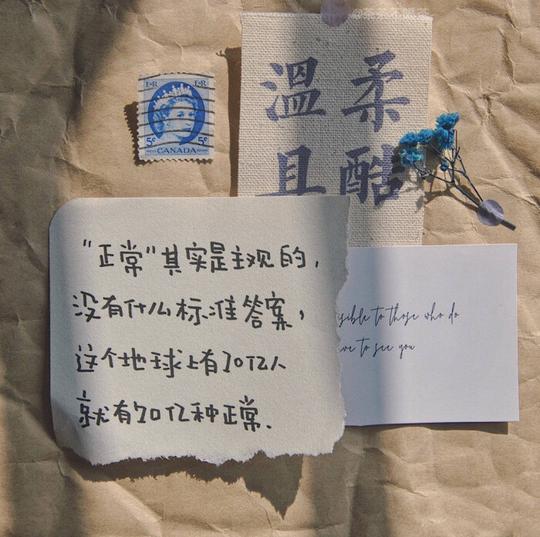 E II R
E II R
5¢
5¢
CANADA
溫柔
且酷
"正常"其实是主观的，
没有什么标准答案，
这个地球上有70亿人
就有70亿种正常.
to those who do
to see you